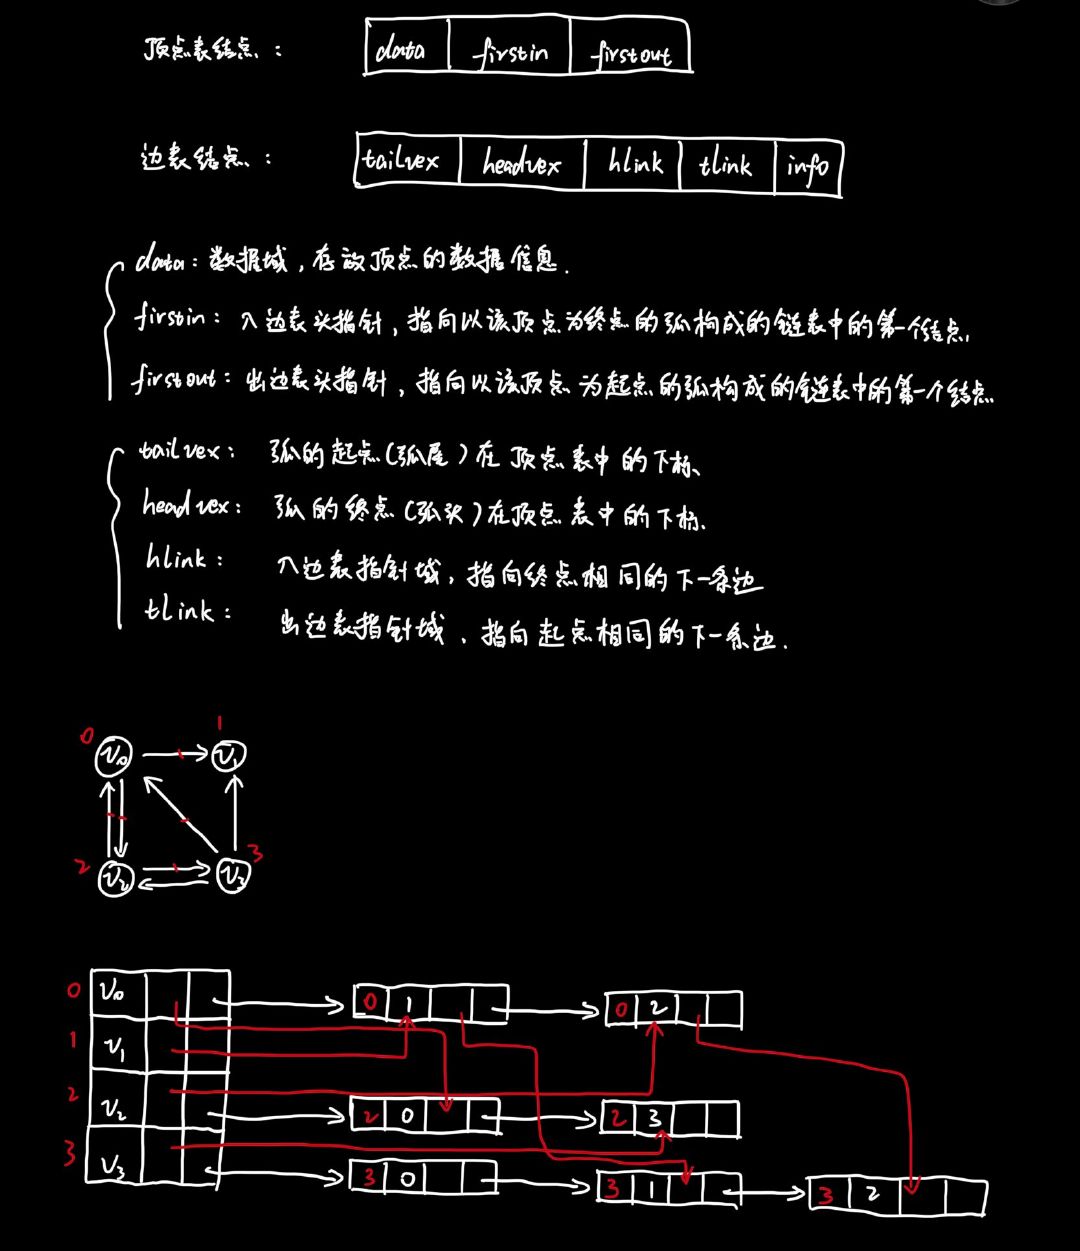 顶点表结点： data firstin firstout
边表结点： tailvex headvex hlink tlink info
data：数据域，存放顶点的数据信息.
firstin：入边表头指针，指向以该顶点为终点的弧构成的链表中的第一个结点.
firstout：出边表头指针，指向以该顶点为起点的弧构成的链表中的第一个结点
tailvex：弧的起点(弧尾)在顶点表中的下标、
headvex：弧的终点(弧头)在顶点表中的下标.
hlink：入边表指针域，指向终点相同的下一条边
tlink：出边表指针域，指向起点相同的下一条边.
0 1
V₀ V₁
2 3
V₂ V₃
0 V₀ 0 1 0 2
1 V₁
2 V₂ 2 0 2 3
3 V₃ 3 0 3 1 3 2